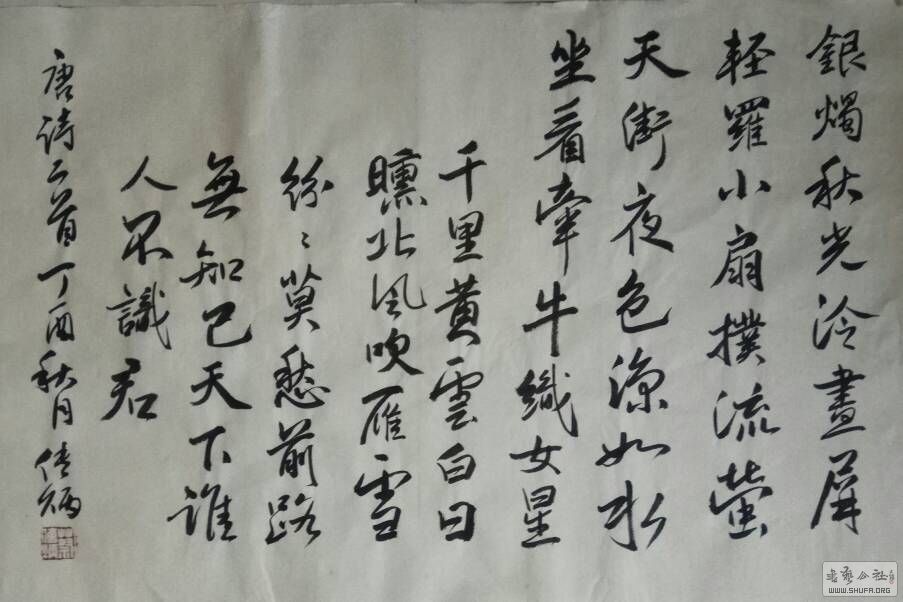 銀燭秋光冷畫屏
輕羅小扇撲流螢
天街夜色涼如水
坐看牽牛織女星
千里黄雲白日
曛北風吹雁雪
紛〻莫愁前路
無知己天下誰
人不識君
唐詩二首丁酉秋月
書藝公社
WWW.SHUFA.ORG